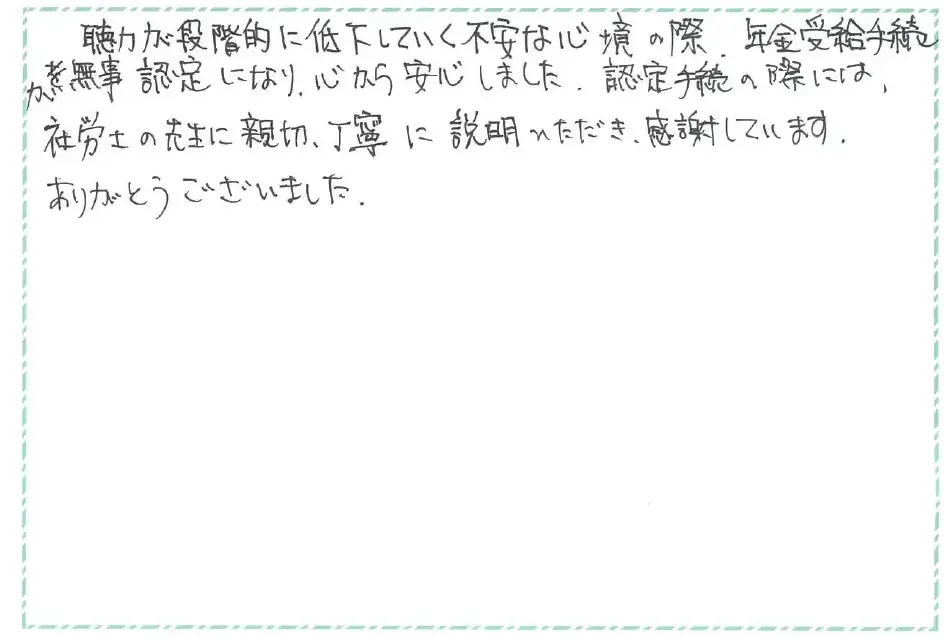 聴力が段階的に低下していく不安な心境の際、年金受給手続
が無事認定になり、心から安心しました。認定手続の際には、
社労士の先生に親切、丁寧に説明いただき、感謝しています。
ありがとうございました。